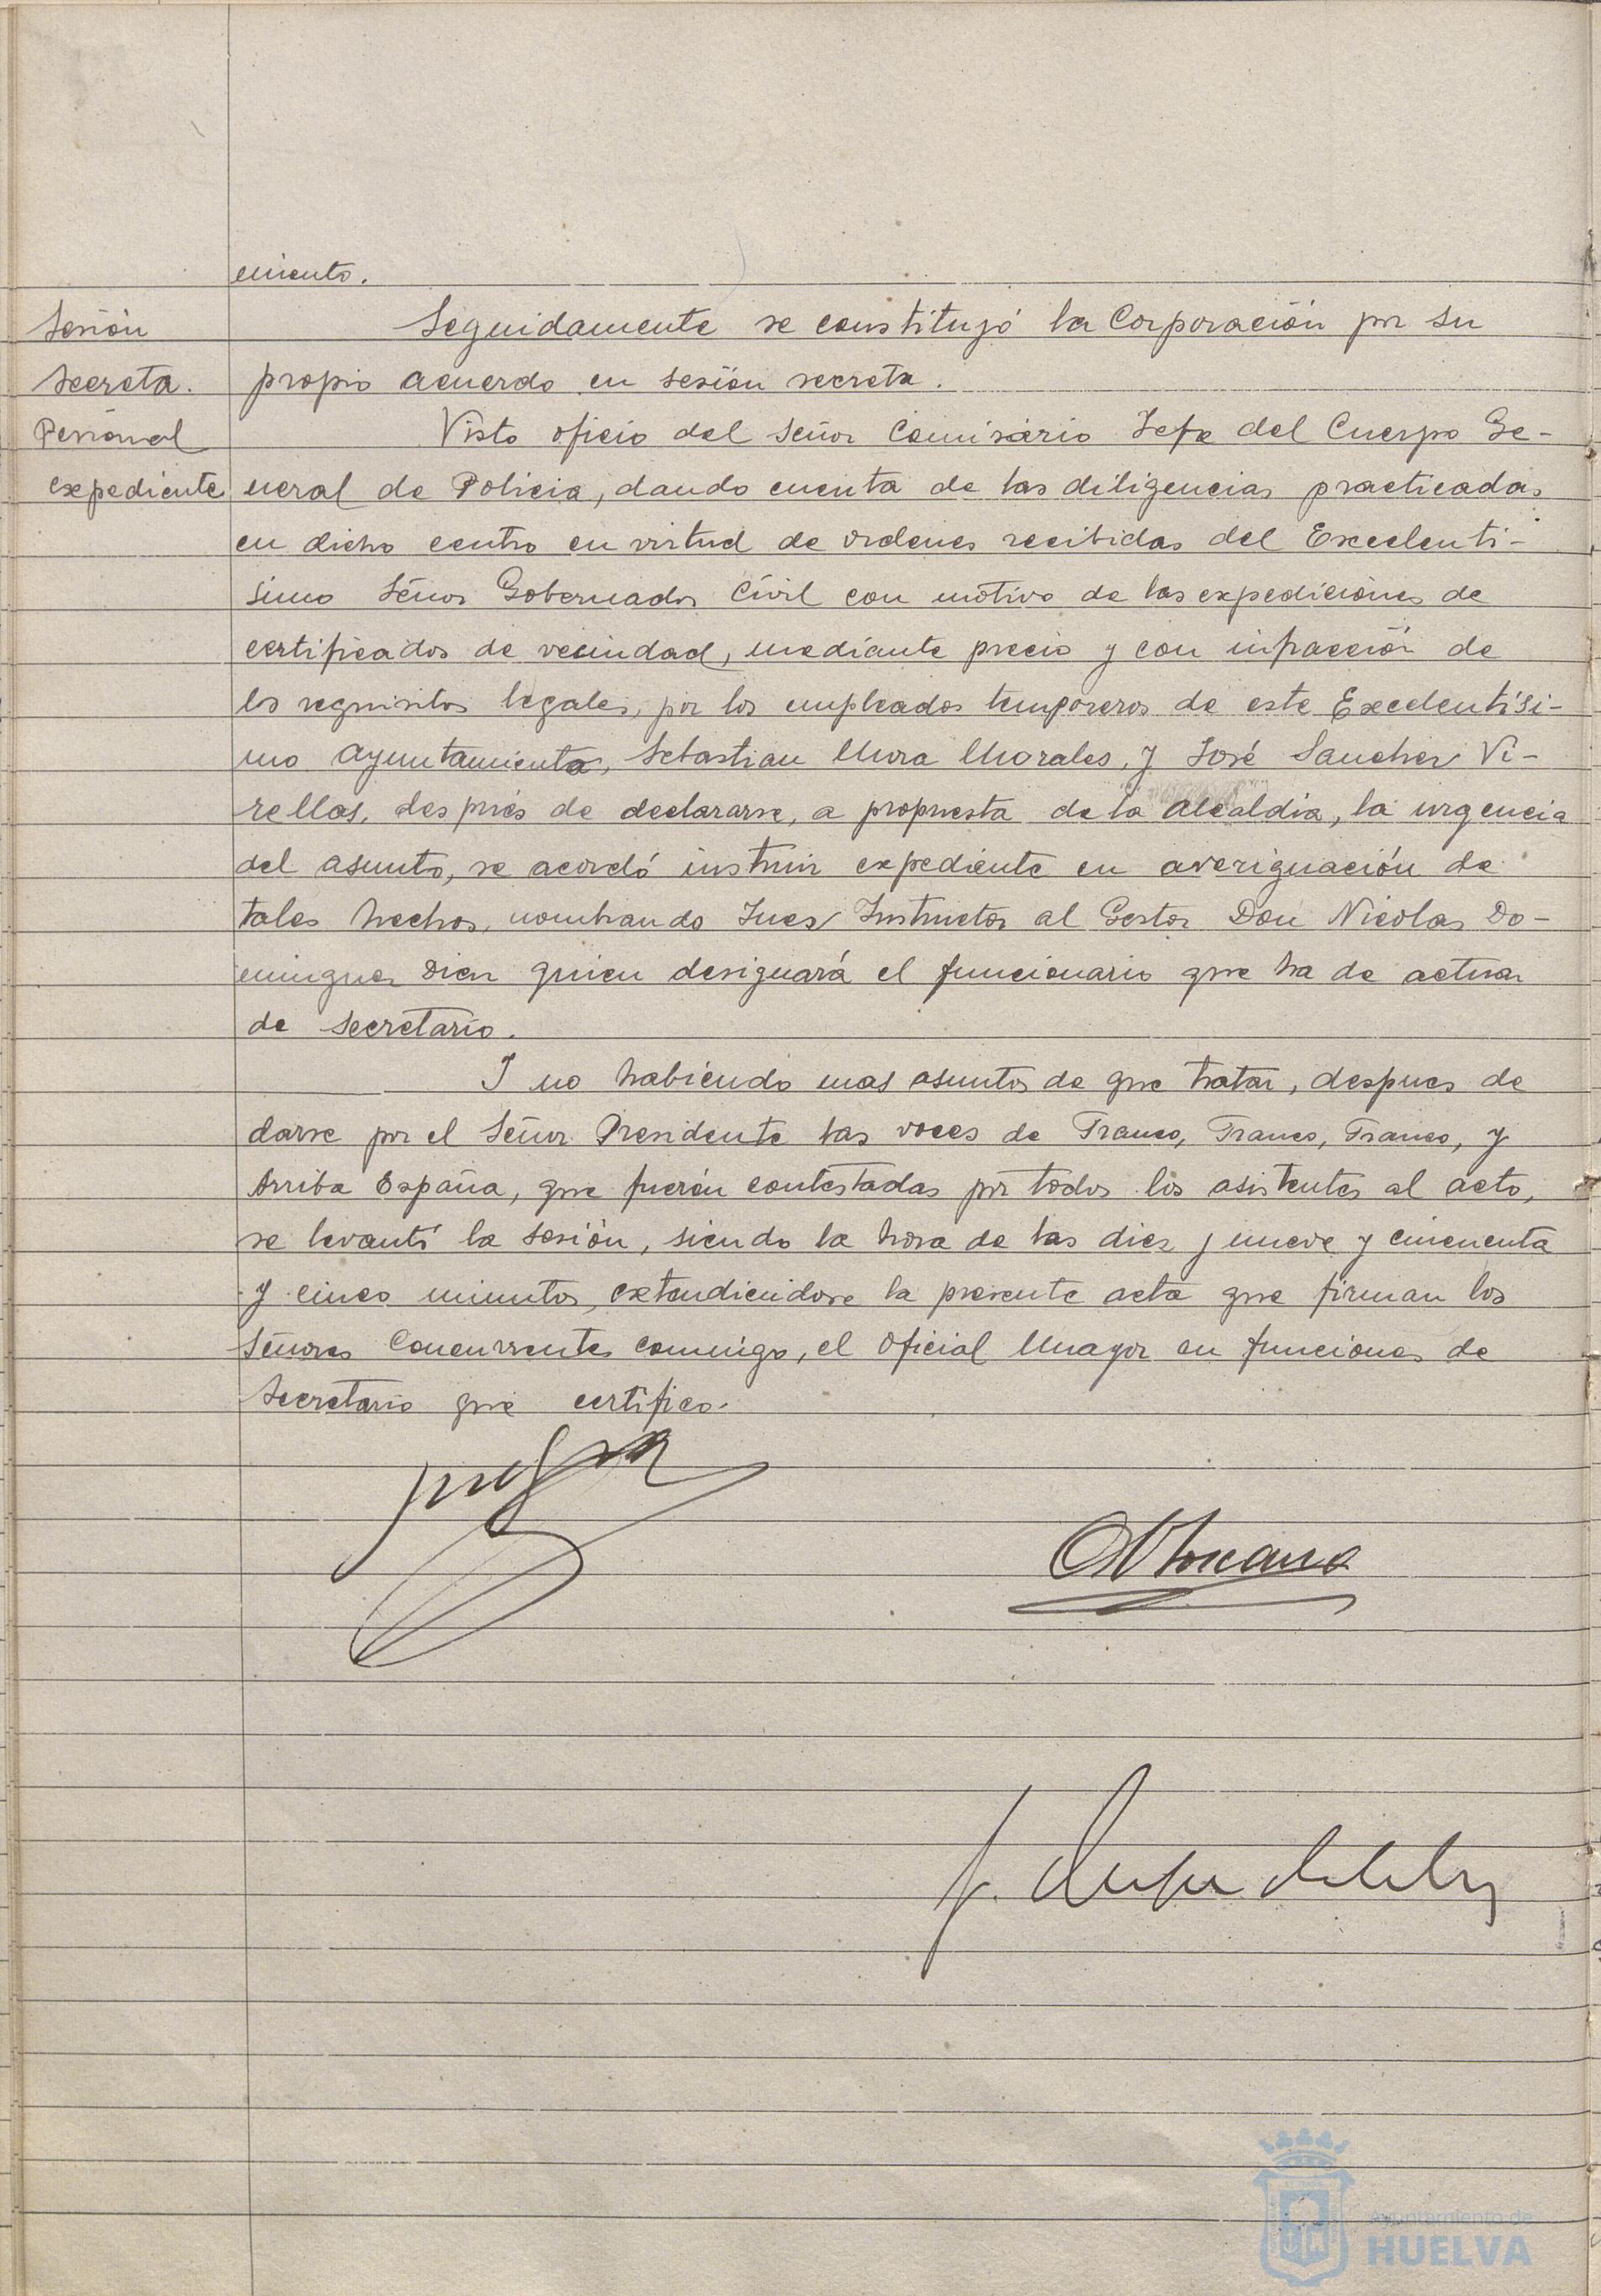 miento.
Sesión
Secreta.
Personal
expediente
Seguidamente se constituyó la Corporación por su
propio acuerdo en sesión secreta.
Visto oficio del Señor Comisario Jefe del Cuerpo Ge-
neral de Policia, dando cuenta de las diligencias practicadas
en dicho centro en virtud de ordenes recibidas del Excelenti-
simo Señor Gobernador Civil con motivo de las expediciones de
certificados de vecindad, mediante precio y con infracción de
los requisitos legales, por los empleados temporeros de este Excelentísi-
mo Ayuntamiento, Sebastian Mora Morales, y José Sanchez Vi-
rellas, despues de declararse, a propuesta de la Alcaldia, la urgencia
del asunto, se acordó instruir expediente en averiguación de
tales hechos, nombrando Juez Instructor al Gestor Don Nicolas Do-
minguez Diez quien designará el funcionario que ha de actuar
de Secretario.
Y no habiendo mas asuntos de que tratar, despues de
darse por el Señor Presidente las voces de Franco, Franco, Franco, y
Arriba España, que fueron contestadas por todos los asistentes al acto,
se levantó la sesión, siendo la hora de las diez y nueve y cincuenta
y cinco minutos, extendiendose la presente acta que firman los
Señores Concurrentes conmigo, el Oficial Mayor en funciones de
Secretario que certifico.
Ayuntamiento de
HUELVA